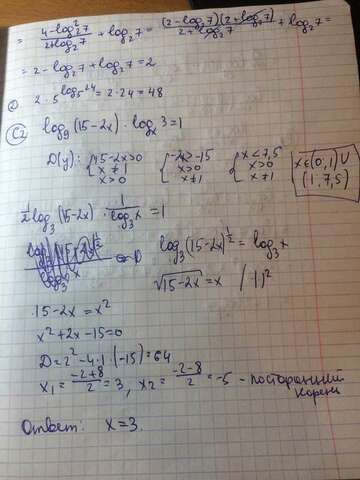 = (4-log₂²7)/(2+log₂7) + log₂7 = ((2-log₂7)(2+log₂7))/(2+log₂7) + log₂7 =
= 2-log₂7+log₂7=2
2) 2·5^(log₅24)=2·24=48
C2 log₉(15-2x)·logₓ3=1
D(y): {15-2x>0 {-2x>-15 {x<7,5 x∈(0,1)∪
x≠1 x>0 x>0 (1,7,5)
x>0 x≠1 x≠1
½log₃(15-2x)·1/(log₃x)=1
log₃(15-2x)^½=log₃x
√(15-2x)=x /()²
15-2x=x²
x²+2x-15=0
D=2²-4·1·(-15)=64
x₁=(-2+8)/2=3, x₂=(-2-8)/2=-5 - посторонний
корень
Ответ: x=3.